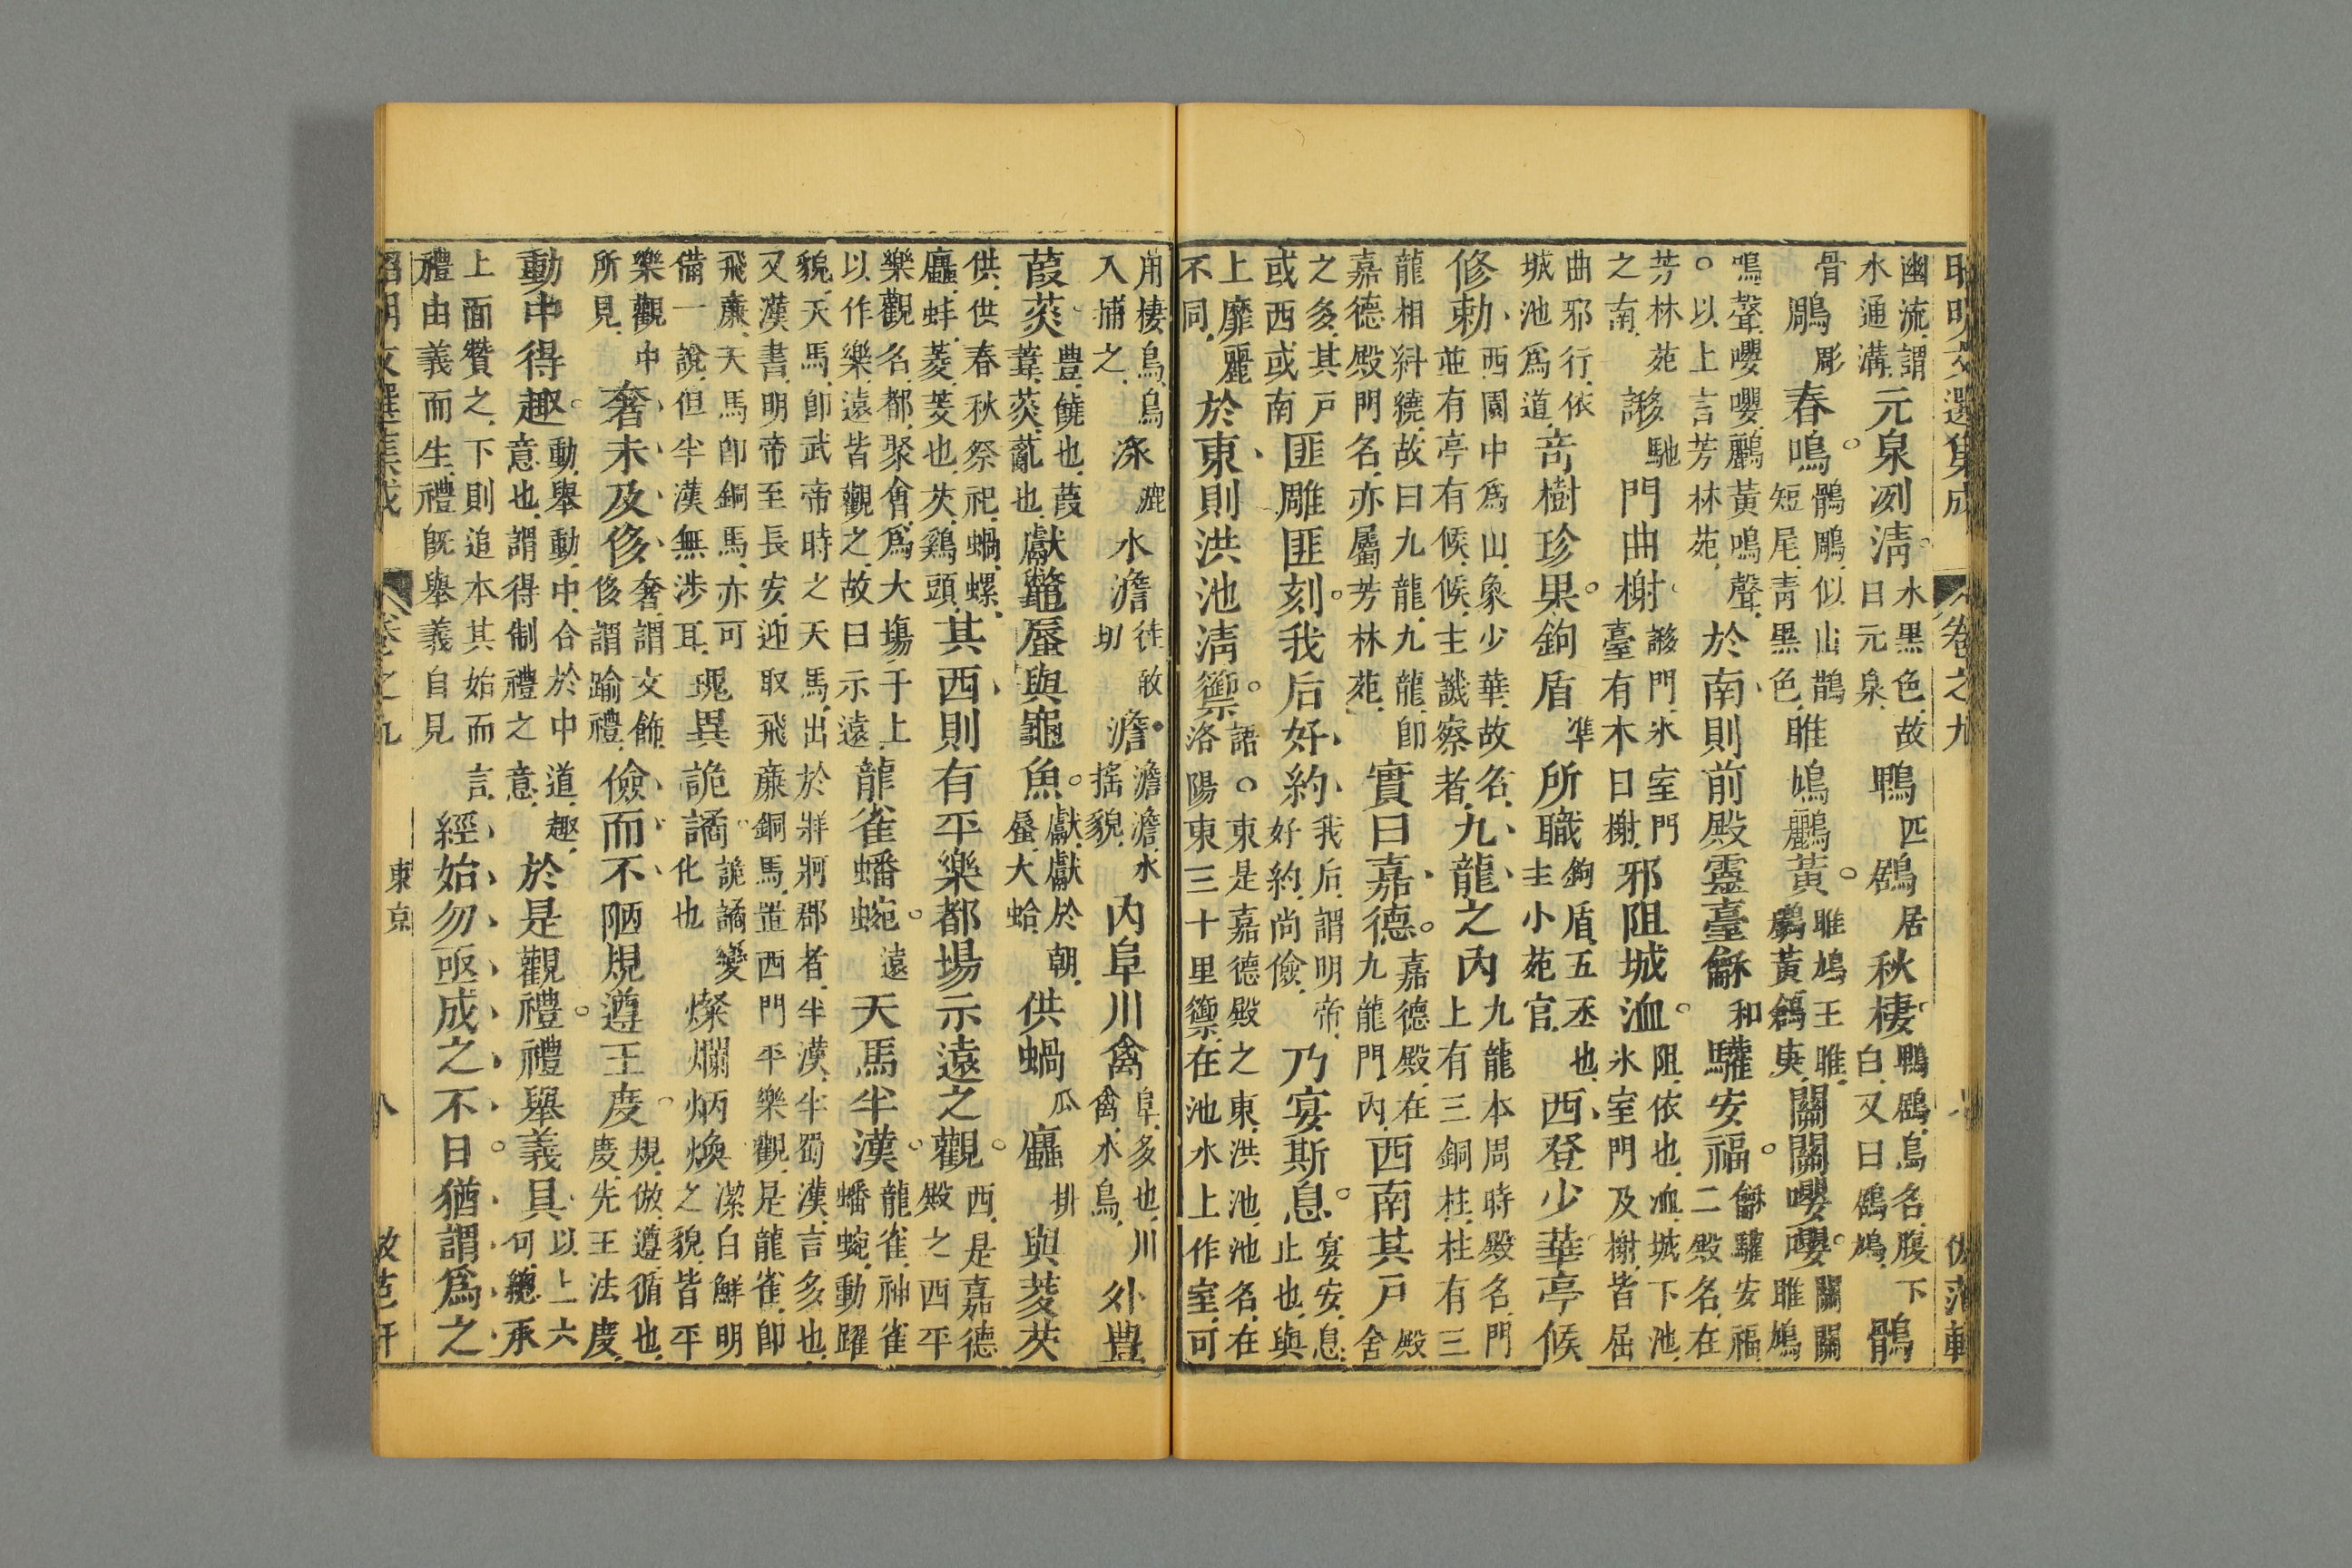 昭明文選集成　卷之九　八　倣范軒
幽流謂水通溝元泉冽清。水黑色故曰元泉鴨匹鶋居秋棲。鴨鶋鳥名腹下白又曰鶋鳩鶻
骨鵰彫春鳴。鶻鵰似山鵲短尾青黑色雎鳩鸝黃。雎鳩王雎鸝黃鶬庚關關嚶嚶。關關雎鳩
鳴聲嚶嚶鸝黃鳴聲○以上言芳林苑於南則前殿靈臺龢和驩安福。龢驩安福二殿名在
芳林苑之南謻馳門曲榭。謻門氷室門臺有木曰榭邪阻城洫。阻依也洫城下池氷室門及榭皆屈
曲邪行依城池爲道奇樹珍果。鉤盾準所職鉤盾五丞也主小苑官西登少華亭候
修勅西園中爲山象少華故名並有亭有候候主譏察者九龍之內九龍本周時殿名門上有三銅柱柱有三
龍相糾繞故曰九龍九龍卽嘉德殿門名亦屬芳林苑實曰嘉德。嘉德殿在九龍門內西南其戶殿舍
之多其戶或西或南匪雕匪刻。我后好約我后謂明帝好約尚儉乃宴斯息。宴安息止也與
上靡麗不同於東則洪池清籞。語○東是嘉德殿之東洪池池名在洛陽東三十里籞在池水上作室可
用棲鳥鳥入捕之淥漉水澹徒敢切澹。澹澹水搖貌內阜川禽阜多也川禽水鳥外豐
葭菼。豊饒也葭葦菼薍也獻鼈蜃與龜魚。獻獻於朝蜃大蛤供蝸瓜蠯排與菱芡
供供春秋祭祀蝸螺蠯蚌菱芰也芡鷄頭其西則有平樂都場示遠之觀。西是嘉德殿之西平
樂觀名都聚會爲大塲于上以作樂遠皆觀之故曰示遠龍雀蟠蜿。遠天馬半漢。龍雀神雀蟠蜿動躍
貌天馬卽武帝時之天馬出於牂牁郡者半漢半蜀漢言多也又漢書明帝至長安迎取飛亷銅馬置西門平樂觀是龍雀卽
飛亷天馬卽銅馬亦可備一說但半漢無涉耳瑰異詭譎。詭譎變化也燦爛炳煥潔白鮮明之貌皆平
樂觀中所見奢未及侈奢謂文飾侈謂踰禮儉而不陋規遵王度。規倣遵循也度先王法度
動中得趣。動舉動中合於中道趣意也謂得制禮之意於是觀禮。禮舉義具以上六句總承
上面贊之下則追本其始而言禮由義而生禮旣舉義自見經始勿亟成之不日。猶謂爲之
昭明文選集成　卷之九　東京　八　倣范軒